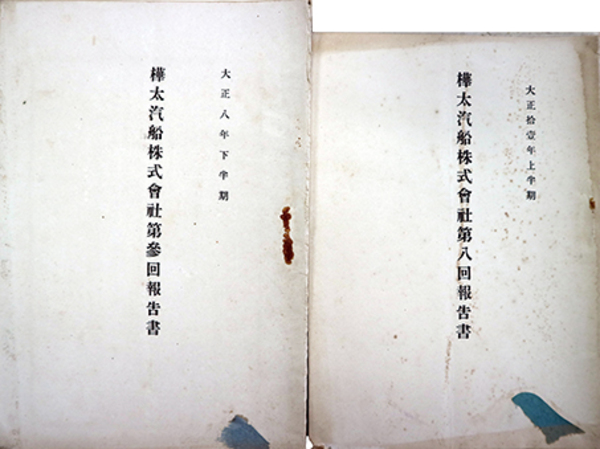 大正八年下半期
樺太汽船株式會社第參回報告書
大正拾壹年上半期
樺太汽船株式會社第八回報告書